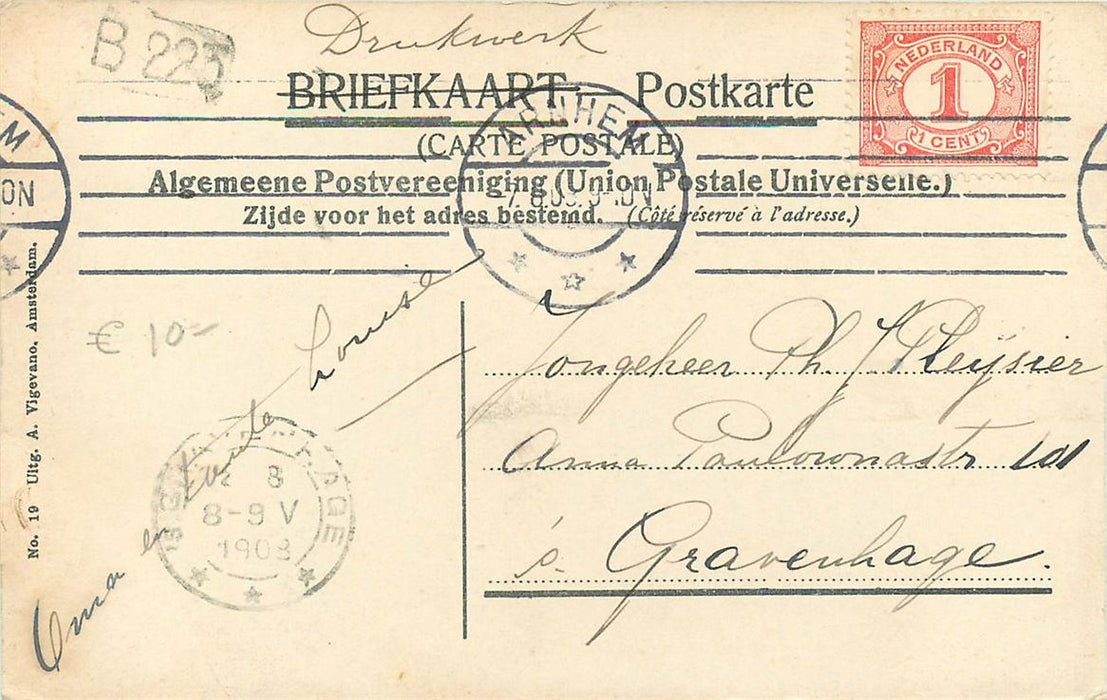 B 223
Drukwerk
BRIEFKAART Postkarte
(CARTE POSTALE)
Algemeene Postvereeniging (Union Postale Universelle.)
Zijde voor het adres bestemd. (Côté réservé à l'adresse.)
NEDERLAND
1
1 CENT
ARNHEM
7. 8.08. 9-10N
€ 10-
Oma en Tante Louise
Jongeheer Ph. J. Pleÿsier
Anna Paulownastr 101
's- Gravenhage.
'S GRAVENHAGE
8
8-9 V
1908
No. 19 Uitg. A. Vigevano, Amsterdam.